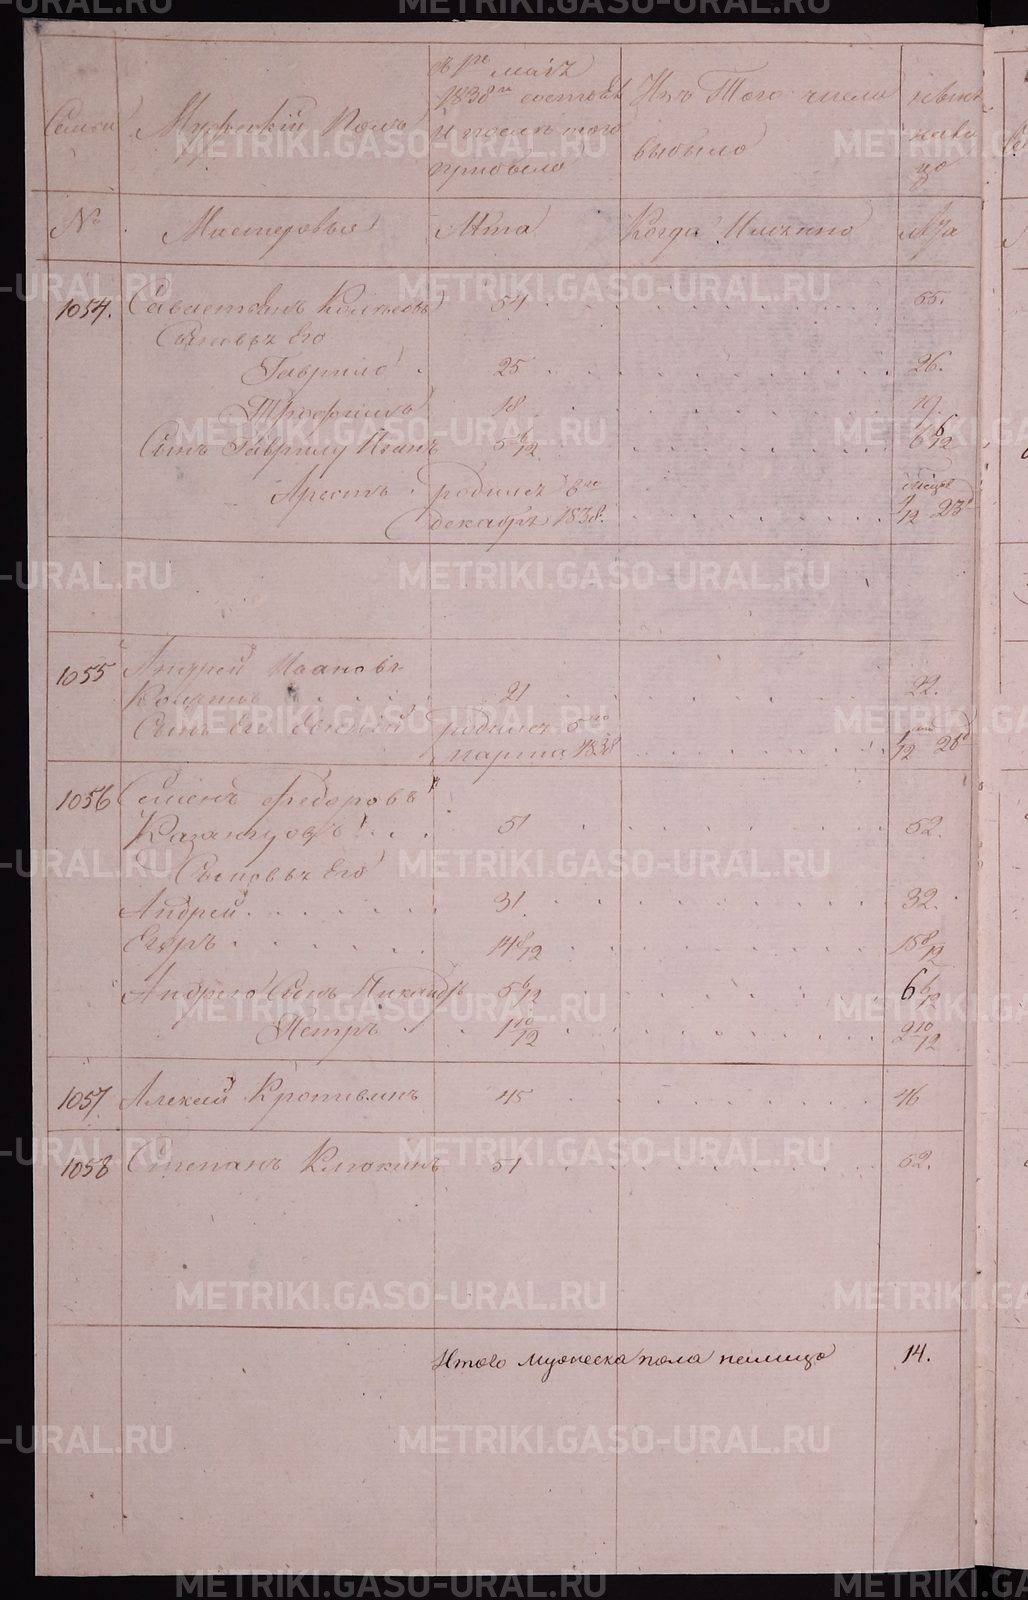 Семьи
Мужескій Полъ
1838 состояло
и послѣ того
прибыло
Изъ Того числа
выбыло
№
Мастеровые
Лѣта
Когда Имѣнно
Лѣта
1054. 54 55.
Сыновья Его
Гаврило 25 26.
Трофимъ 18 19.
Сынъ Гаврилы Иванъ 5 6/12 6 6/12
родился 6го
декабря 1838. 1/12 23
1055 Андрей Ивановъ
21 22.
Сынъ Его родился 5го
марта 1838
1056 Семенъ Федоровъ
Казанцовъ 51 52.
Сыновья Его
Андрей 31. 32.
Егоръ 14 8/12 15 8/12
Андрея Сынъ Никандръ 5 6/12 6 6/12
Петръ 1 10/12 2 10/12
1057 Алексей Кропивинъ 45 46
1058 Степанъ Клюкинъ 51 52.
Итого мужеска пола налицо 14.
METRIKI.GASO-URAL.RU